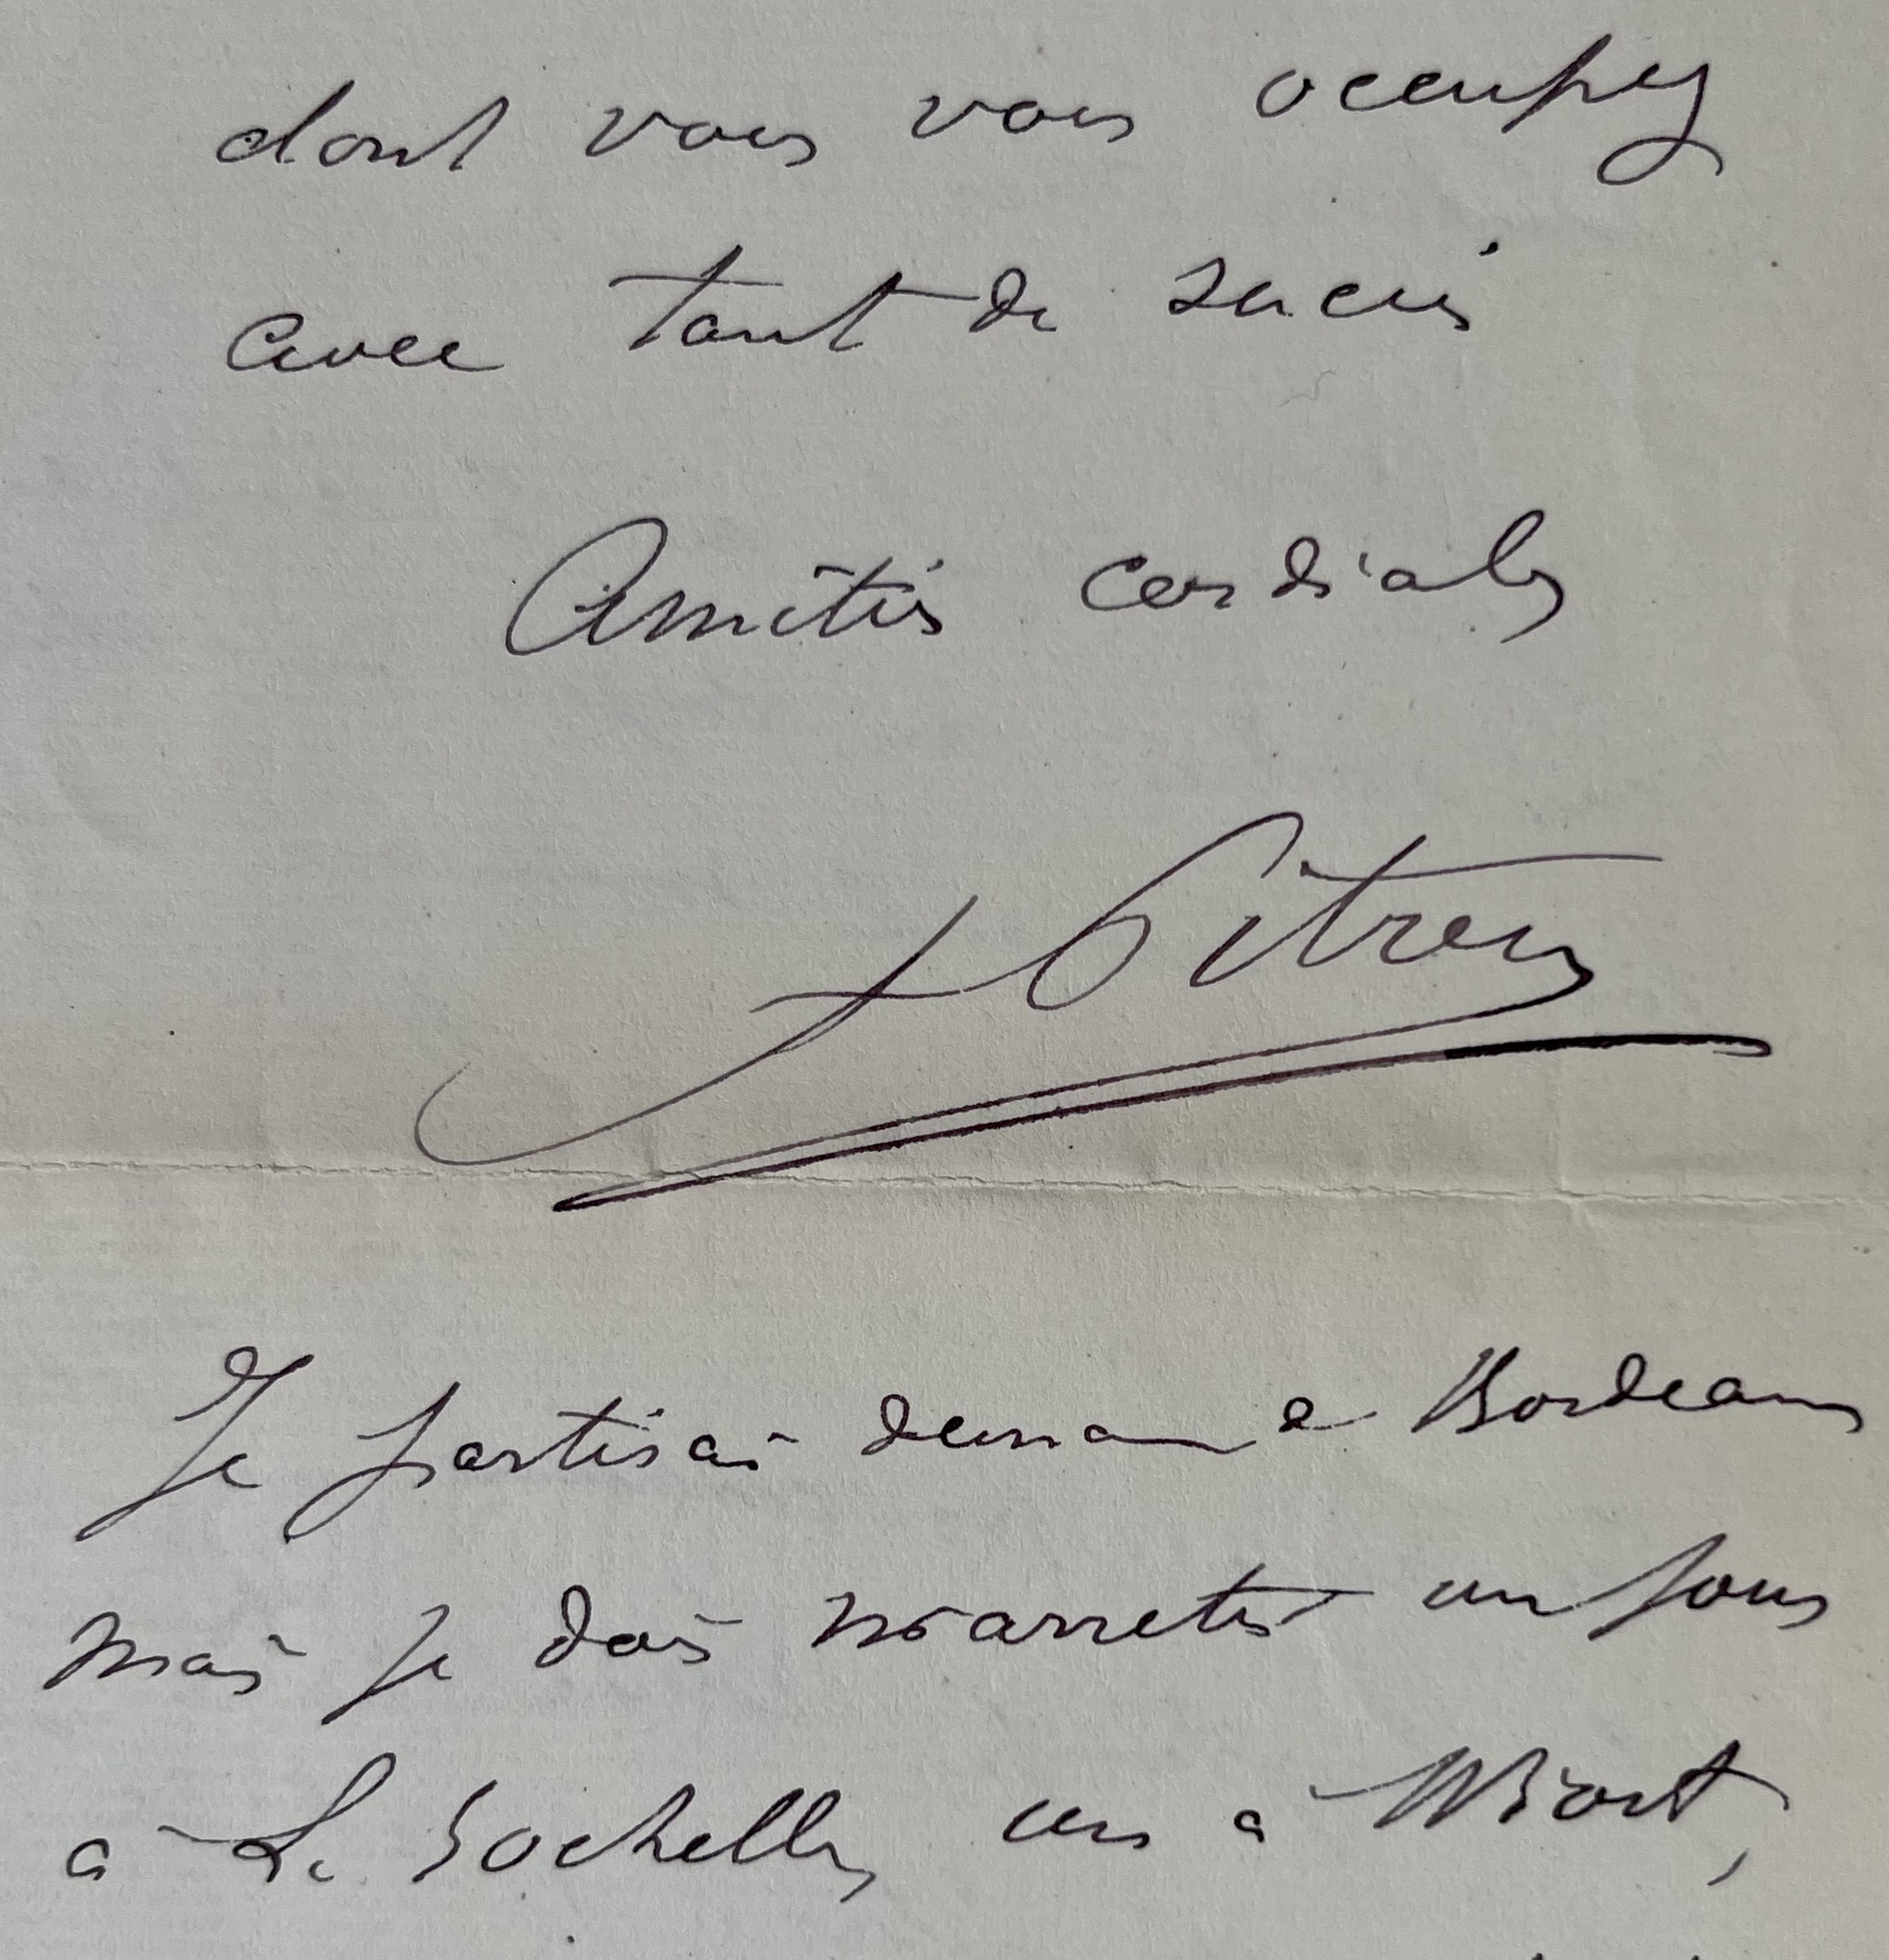 dont vous vous occupez
avec tant de succès
Amitiés cordiales
Pitres
Je partirai demain à Bordeaux
mais je dois m'arreter un jour
à La Rochelle, un à Niort,